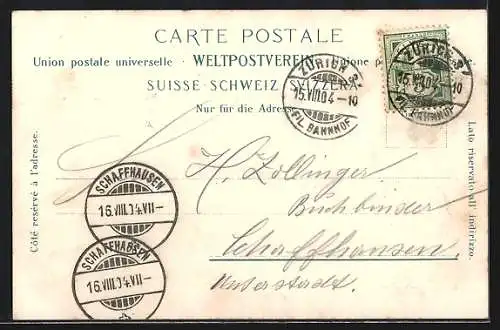 CARTE POSTALE
Union postale universelle - WELTPOSTVEREIN - Unione p
SUISSE · SCHWEIZ · SVIZZERA
Nur für die Adresse
Côté réservé à l'adresse.
Lato riservato all' indirizzo.
ZÜRICH
15.VIII.04-10
FIL. BAHNHOF
ZÜRICH
15.VIII.04-10
FIL. BAHNHOF
H. Zollinger
Buchbinder
Schaffhausen
Unterstadt
SCHAFFHAUSEN
16.VIII.04.VII-
SCHAFFHAUSEN
16.VIII.04.VII-